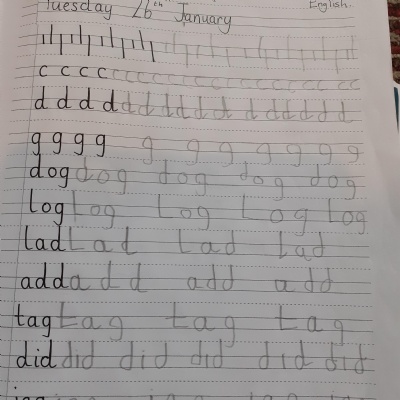 English.
Tuesday 26th January
c c c c c c c c c c c c c c c c c c c
d d d d d d d d d d d d d d d d
g g g g g g g g g g g
dog dog dog dog dog
Log Log Log Log Log
Lad Lad Lad Lad
add add add add
tag tag tag tag
did did did did did did